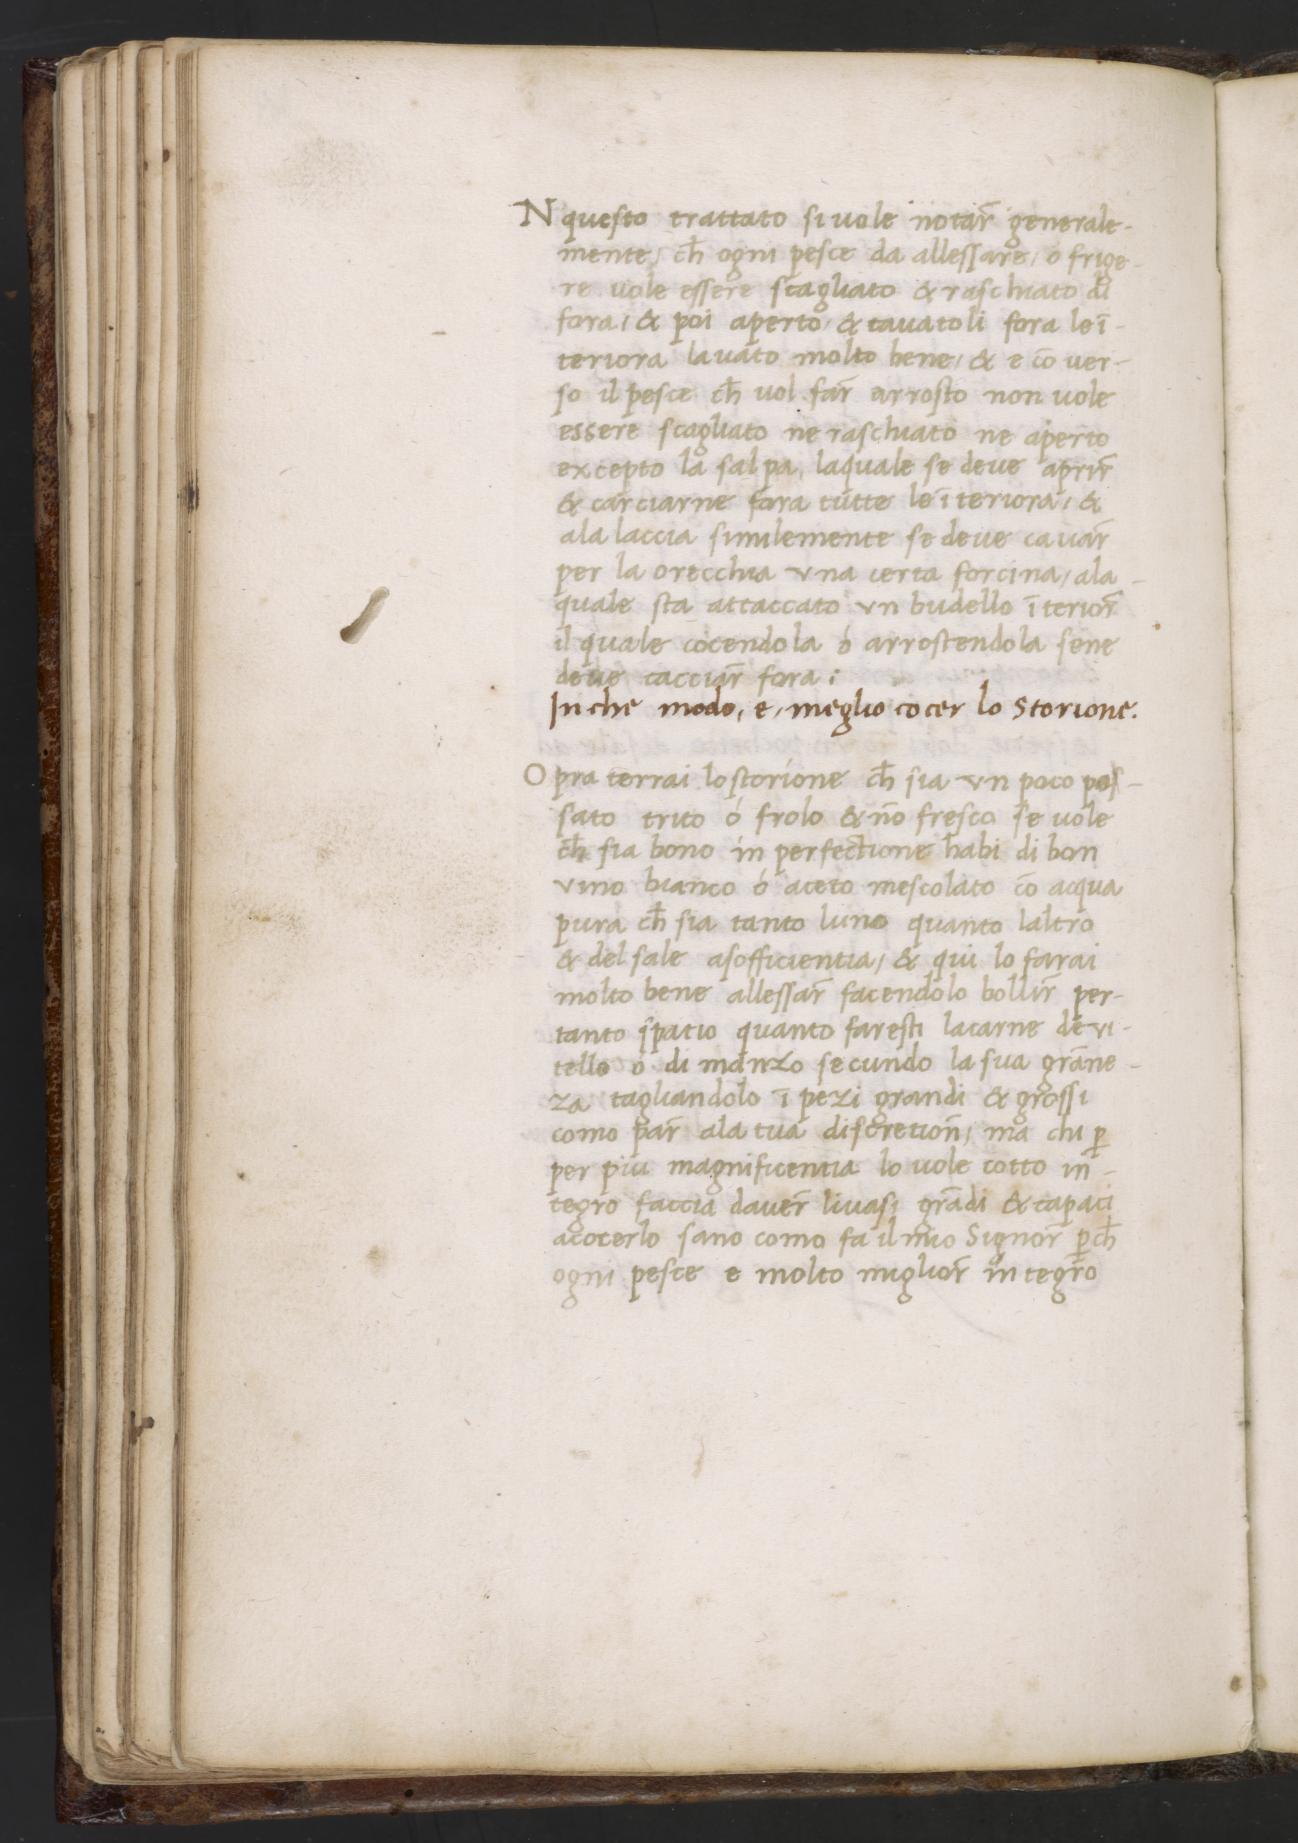 N questo trattato si vole notar̄ generale-
mente, ch̄ ogni pesce da allessare, ó frige-
re vole essere scagliato & raschiato di
fora, & poi aperto, & cavatoli fora le ī-
teriora lavato molto bene, & e cō ver-
so il pesce ch̄ vol far̄ arrosto non vole
essere scagliato ne raschiato ne aperto
excepto la salpa, laquale se deve aprir̄
& carciarne fora tutte le īteriora, &
ala laccia similemente se deve cavar̄
per la orecchia una certa forcina, ala
quale sta attaccato un budello īterior̄
il quale cocendola ó arrostendola sene
deve cacciar̄ fora:
In che modo, e, meglio cocer lo Storione.
O pra terrai lo storione ch̄ sia un poco pas-
sato trito ó frolo & nō fresco se vole
ch̄ sia bono in perfectione habi di bon
vino bianco ó aceto mescolato cō acqua
pura ch̄ sia tanto luno quanto laltro
& del sale asofficientia, & qui lo farai
molto bene allessar̄ facendolo bollir̄ per-
tanto spatio quanto faresti la carne de vi-
tello o di manzo secundo la sua grāne-
za tagliandolo ī pezi grandi & grossi
como par̄ ala tua discretion̄, ma chi p̄
per piu magnificentia lo vole cotto in-
tegro faccia daver̄ li vasi grādi & capaci
acocerlo sano como fa il mio Signor̄ p̄ch̄
ogni pesce e molto miglior̄ in tegro